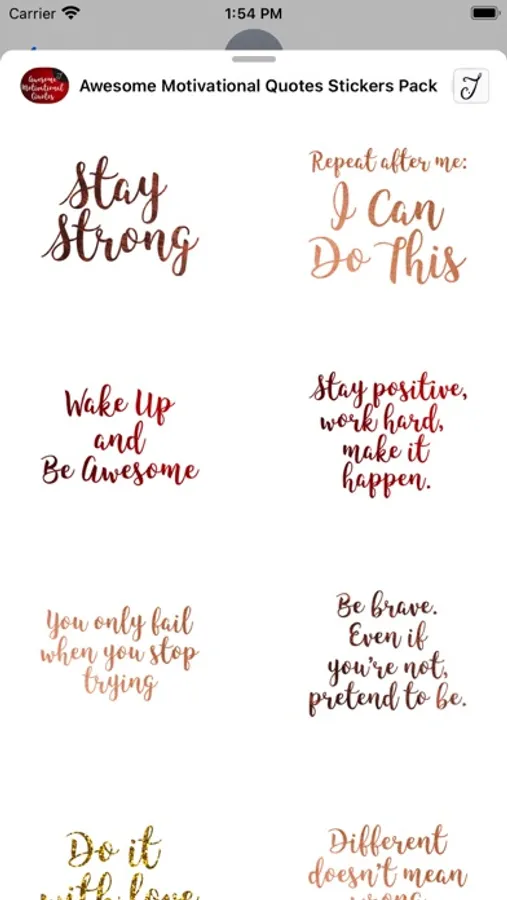 Carrier 1:54 PM
Awesome
Motivational
Quotes
Awesome Motivational Quotes Stickers Pack
Stay
Strong
Repeat after me:
I Can
Do This
Wake Up
and
Be Awesome
Stay positive,
work hard,
make it
happen.
You only fail
when you stop
trying
Be brave.
Even if
you're not,
pretend to be.
Do it
with love
Different
doesn't mean
wrong